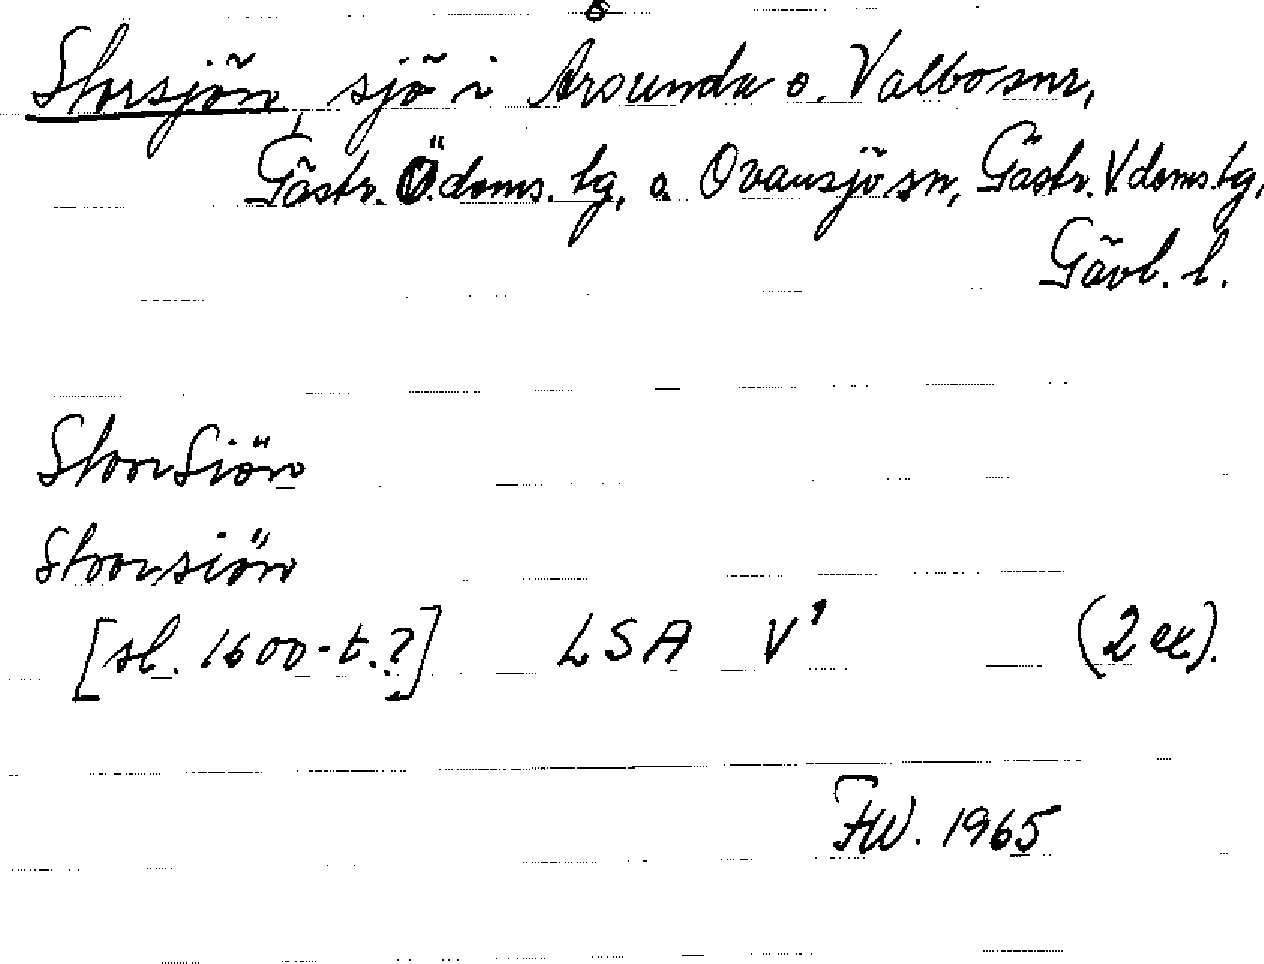 Storsjön, sjö i Årsunda o. Valbo snr,
Gästr. Ö. doms. lg, o. Ovansjö sn, Gästr. V. doms. lg,
Gävl. l.
StoorSiön
Stoorsiön
[sl. 1600-t.?] LSA V' (2 ex).
FW. 1965